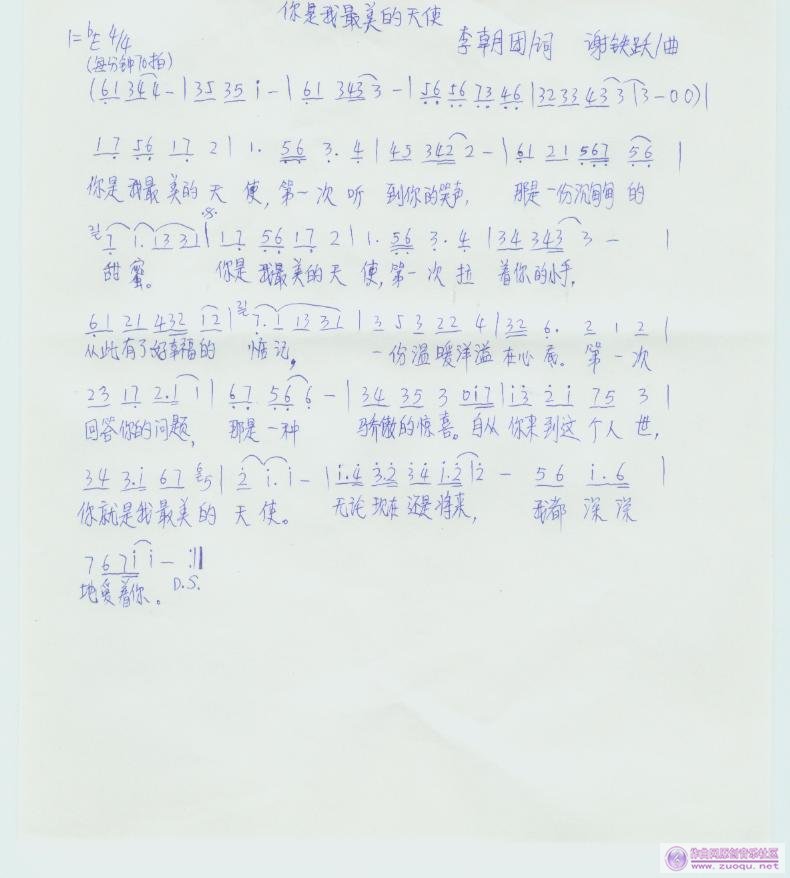 你是我最美的天使
1=♭E 4/4 李朝团/词 谢铁跃/曲
(每分钟70拍)
(61 344 - | 35 35 i - | 61 343 3 - | 56 56 73 46 | 32 33 43 3 | 3 - 0 0) |
17 56 17 2 | 1. 56 3. 4 | 45 342 2 - | 61 21 567 56 |
你是我最美的天使,第一次听到你的笑声, 那是一份沉甸甸的
7 1. 13 31 | 17 56 17 2 | 1. 56 3. 4 | 34 343 3 - |
甜蜜。 你是我最美的天使,第一次拉着你的小手,
61 21 432 12 | 7. 1 13 31 | 3 5 3 22 4 | 32 6. 2 1 2 |
从此有了好幸福的惦记, 一份温暖洋溢在心底。第一次
23 17 2.1 1 | 67 56 6 - | 34 35 3 0i7 | i3 2i 75 3 |
回答你的问题, 那是一种 骄傲的惊喜。自从你来到这个人世,
34 3.i 67 5 | 2 i. i - | i.4 3.2 34 i.2 | 2 - 56 i.6 |
你就是我最美的天使。 无论现在还是将来, 我都深深
7 67i i - :||
地爱着你。 D.S.
作曲网原创音乐社区
www.zuoqu.net